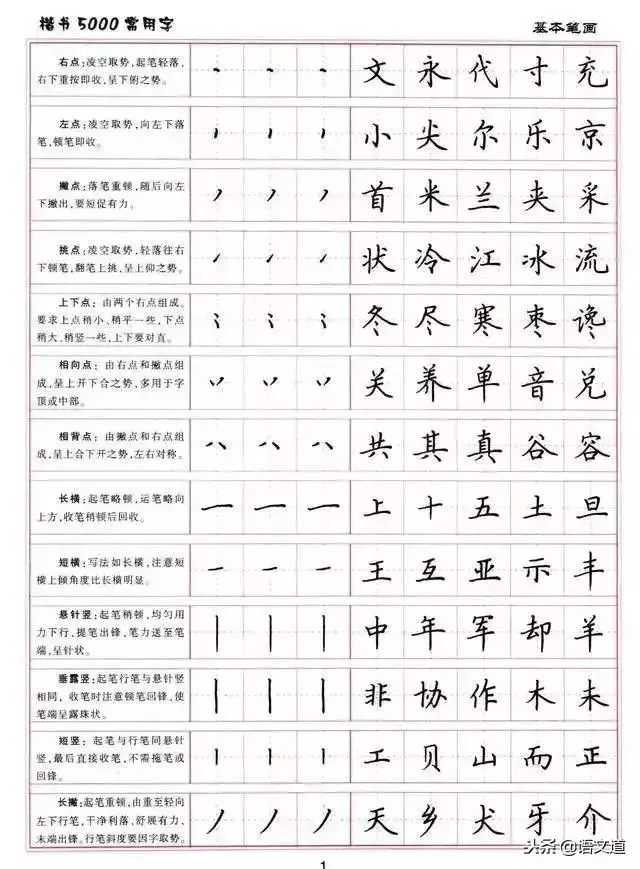 楷书5000常用字
基本笔画
右点:凌空取势,起笔轻落,
右下重按即收,呈下俯之势。
文永代寸充
左点:凌空取势,向左下落
笔,顿笔即收。
小尖尔乐京
撇点:落笔重顿,随后向左
下撇出,要短促有力。
首米兰夹采
挑点:凌空取势,轻落往右
下顿笔,翻笔上挑,呈上仰之势。
状冷江冰流
上下点:由两个右点组成。
要求上点稍小、稍平一些,下点
稍大,稍竖一些,上下要对直。
冬尽寒枣谗
相向点:由右点和撇点组
成,呈上开下合之势,多用于字
顶或中部。
关养单音兑
相背点:由撇点和右点组
成,呈上合下开之势,左右对称。
共其真谷容
长横:起笔略顿,运笔略向
上方,收笔稍顿后回收。
上十五土旦
短横:写法如长横,注意短
横上倾角度比长横明显。
王互亚示丰
悬针竖:起笔稍顿,均匀用
力下行,提笔出锋,笔力送至笔
端,呈针状。
中年军却羊
垂露竖:起笔行笔与悬针竖
相同,收笔时注意顿笔回锋,使
笔端呈露珠状。
非协作木未
短竖:起笔与行笔同悬针
竖,最后直接收笔,不需拖笔或
回锋。
工贝山而正
长撇:起笔重顿,由重至轻向
左下行笔,干净利落,舒展有力,
末端出锋。行笔斜度要因字取势。
天乡犬牙介
头条@语文道
1